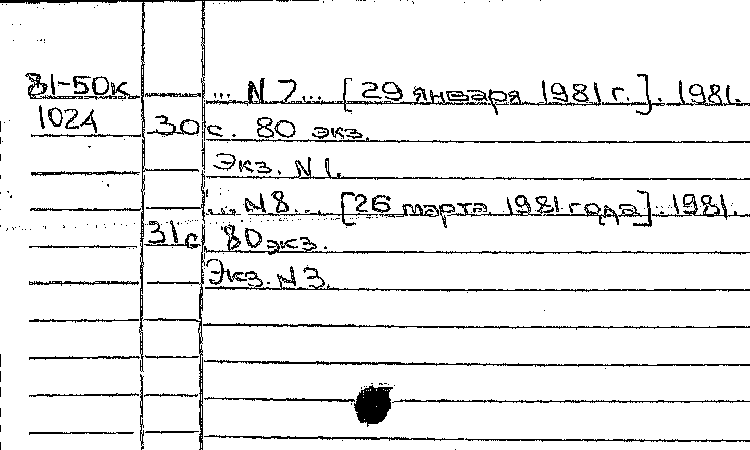 81-50к ... N 7... [29 января 1981 г.]. 1981.
1024 30 с. 80 экз.
Экз. N 1.
... N 8... [26 марта 1981 года]. 1981.
31 с 80 экз.
Экз. N 3.